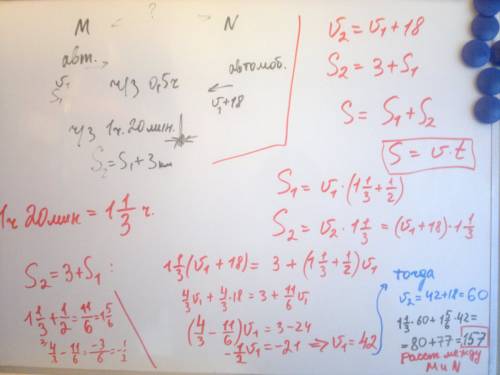 M < ? > N
авт. →
v₁
S₁
ч/з 0,5ч
автомоб.
←
v₁+18
ч/з 1ч. 20мин.
S₂ = S₁ + 3 км
v₂ = v₁ + 18
S₂ = 3 + S₁
S = S₁ + S₂
S = v · t
S₁ = v₁ · (1 1/3 + 1/2)
S₂ = v₂ · 1 1/3 = (v₁ + 18) · 1 1/3
1ч 20мин = 1 1/3 ч.
S₂ = 3 + S₁ :
1 1/3 + 1/2 = 11/6 = 1 5/6
4/3 - 11/6 = -3/6 = -1/2
1 1/3 (v₁ + 18) = 3 + (1 1/3 + 1/2) v₁
4/3 v₁ + 4/3 · 18 = 3 + 11/6 v₁
(4/3 - 11/6) v₁ = 3 - 24
-1/2 v₁ = -21 ⇒ v₁ = 42
тогда
v₂ = 42 + 18 = 60
1 1/3 · 60 + 1 5/6 · 42 =
= 80 + 77 = 157
Расст. между
M и N